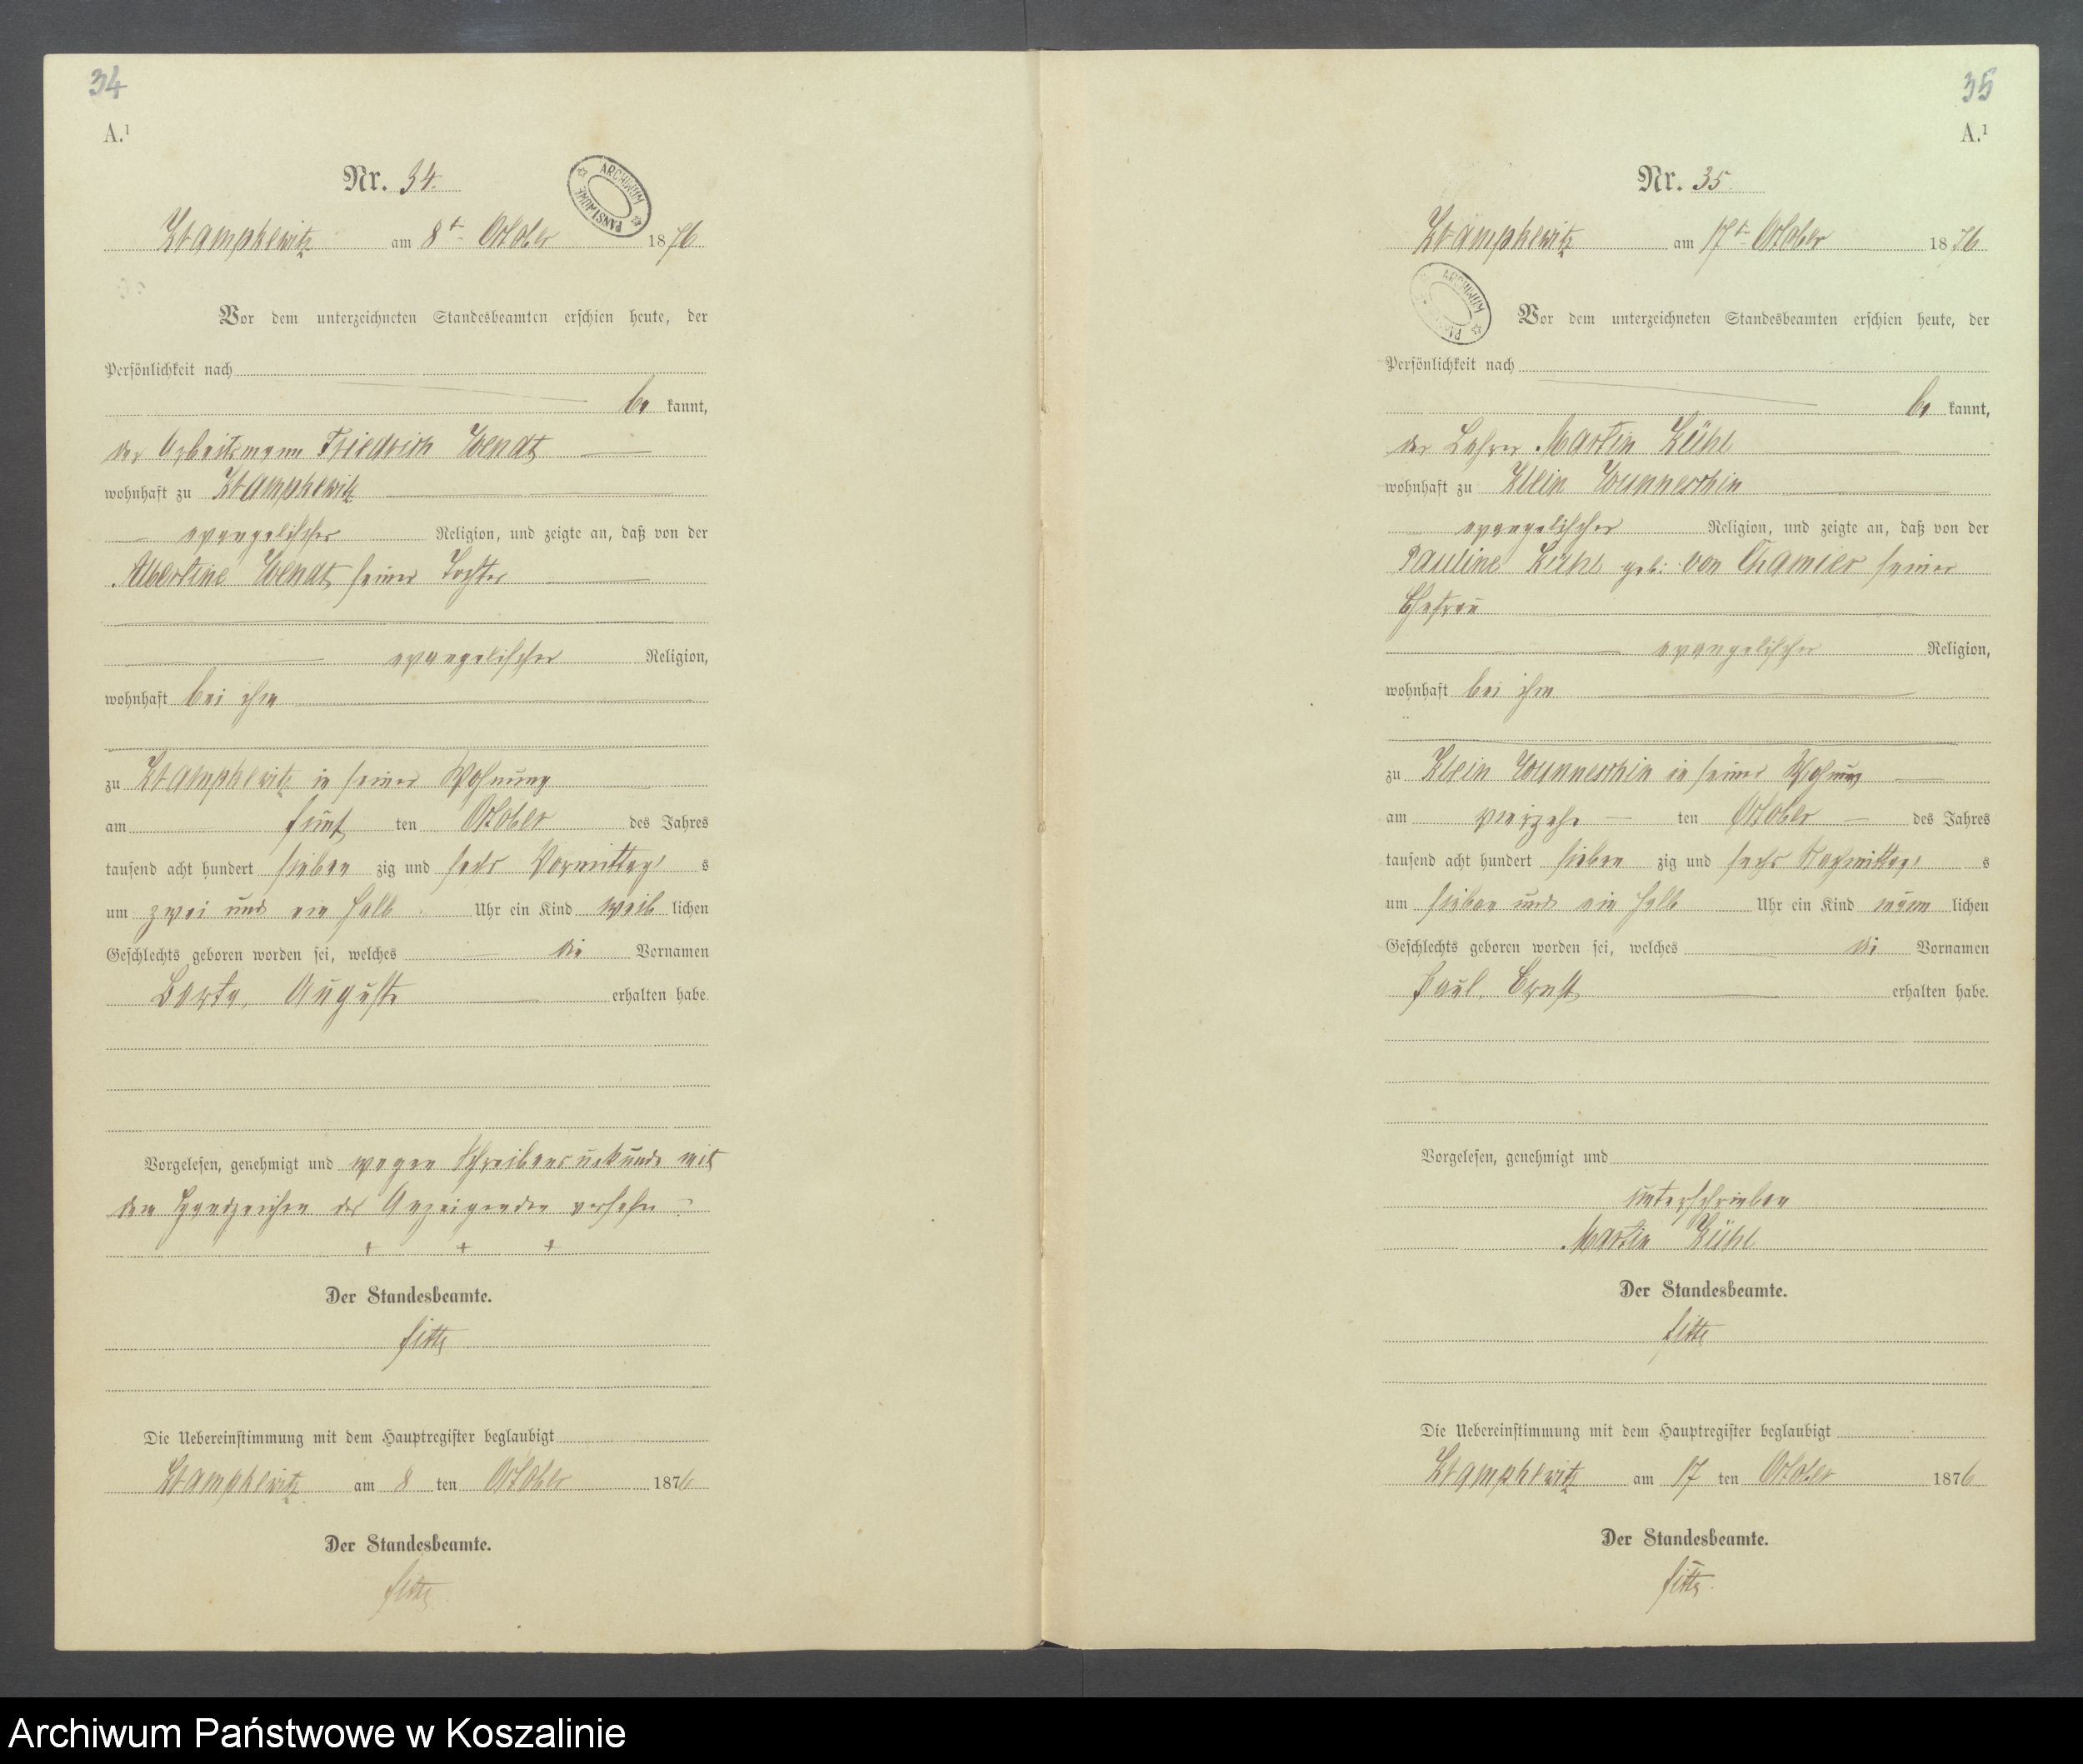 34
A.¹
Nr. 34.
Krampkewitz am 8t. October 1876
Vor dem unterzeichneten Standesbeamten erschien heute, der
Persönlichkeit nach
be kannt,
der Arbeitsmann Friedrich Wendt
wohnhaft zu Krampkewitz
evangelischer Religion, und zeigte an, daß von der
Albertine Wendt, seiner Tochter
evangelischer Religion,
wohnhaft bei ihm
zu Krampkewitz in seiner Wohnung
am fünf ten October des Jahres
tausend acht hundert sieben zig und sechs Vormittags s
um zwei und ein halb Uhr ein Kind weib lichen
Geschlechts geboren worden sei, welches die Vornamen
Berta, Auguste erhalten habe.
Vorgelesen, genehmigt und wegen Schreibensunkunde mit
dem Handzeichen des Anzeigenden versehen.
+ + +
Der Standesbeamte.
Die Uebereinstimmung mit dem Hauptregister beglaubigt
Krampkewitz am 8 ten October 1876
Der Standesbeamte.
35
A.¹
Nr. 35.
Krampkewitz am 17t. October 1876
Vor dem unterzeichneten Standesbeamten erschien heute, der
Persönlichkeit nach
be kannt,
der Lehrer Martin Kühl
wohnhaft zu Klein Wunneschin
evangelischer Religion, und zeigte an, daß von der
Pauline Kühl geb. von Chamier seiner
Ehefrau
evangelischer Religion,
wohnhaft bei ihm
zu Klein Wunneschin in seiner Wohnung
am vierzehn ten October des Jahres
tausend acht hundert sieben zig und sechs Nachmittags s
um sieben und ein halb Uhr ein Kind männ lichen
Geschlechts geboren worden sei, welches die Vornamen
Paul, Ernst erhalten habe.
Vorgelesen, genehmigt und
unterschrieben
Martin Kühl
Der Standesbeamte.
Die Uebereinstimmung mit dem Hauptregister beglaubigt
Krampkewitz am 17 ten October 1876
Der Standesbeamte.
ARCHIWUM PAŃSTWOWE
Archiwum Państwowe w Koszalinie